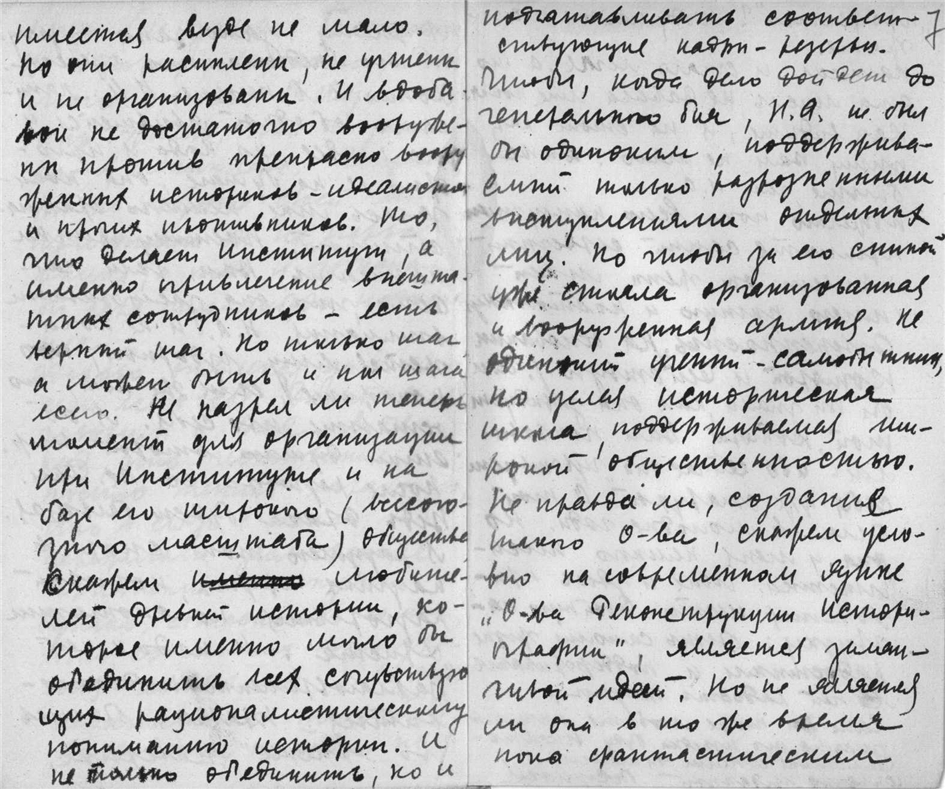 имеется везде не мало.
Но они распылены, не учтены
и не организованы. И вдоба
вок не достаточно вооруже-
ны против прекрасно воору
женных историков-идеалистов
и прочих противников. То,
что делает Институт, а
именно привлечение внешта-
тных сотрудников – есть
верный шаг. Но только шаг
а может быть и пол шага
всего. Не назрел ли теперь
момент для организации
при Институте и на
базе его широкого (всесою-
зного масштаба) общества
скажем именно любите-
лей древней истории, ко-
торое именно могло бы
объединить всех сочувствую
щих рационалистическому
пониманию истории. И
не только объединить, но и
7
подготавливать соответ-
ствующие кадры-резервы.
Чтобы, когда дело дойдет до
генерального боя, Н.А. не был
бы одиноким, поддержива-
емый только разрозненными
выступлениями отдельных
лиц. Но чтобы за его спиной
уже стояла организованная
и вооруженная армия. Не
одинокий ученый-самобытник,
но целая историческая
школа, поддерживаемая ши-
рокой общественностью.
Не правда ли, создание
такого О-ва, скажем усло-
вно на современном языке
„О-ва Реконструкции Истори-
ографии", является заман-
чивой идеей. Но не является
ли она в то же время
пока фантастическим